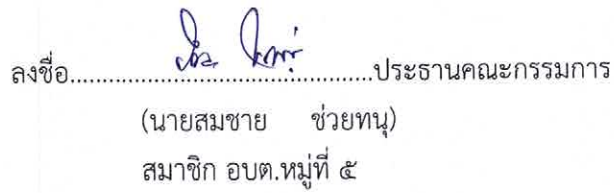 ลงชื่อ............................................ประธานคณะกรรมการ
(นายสมชาย ช่วยทนุ)
สมาชิก อบต.หมู่ที่ ๕